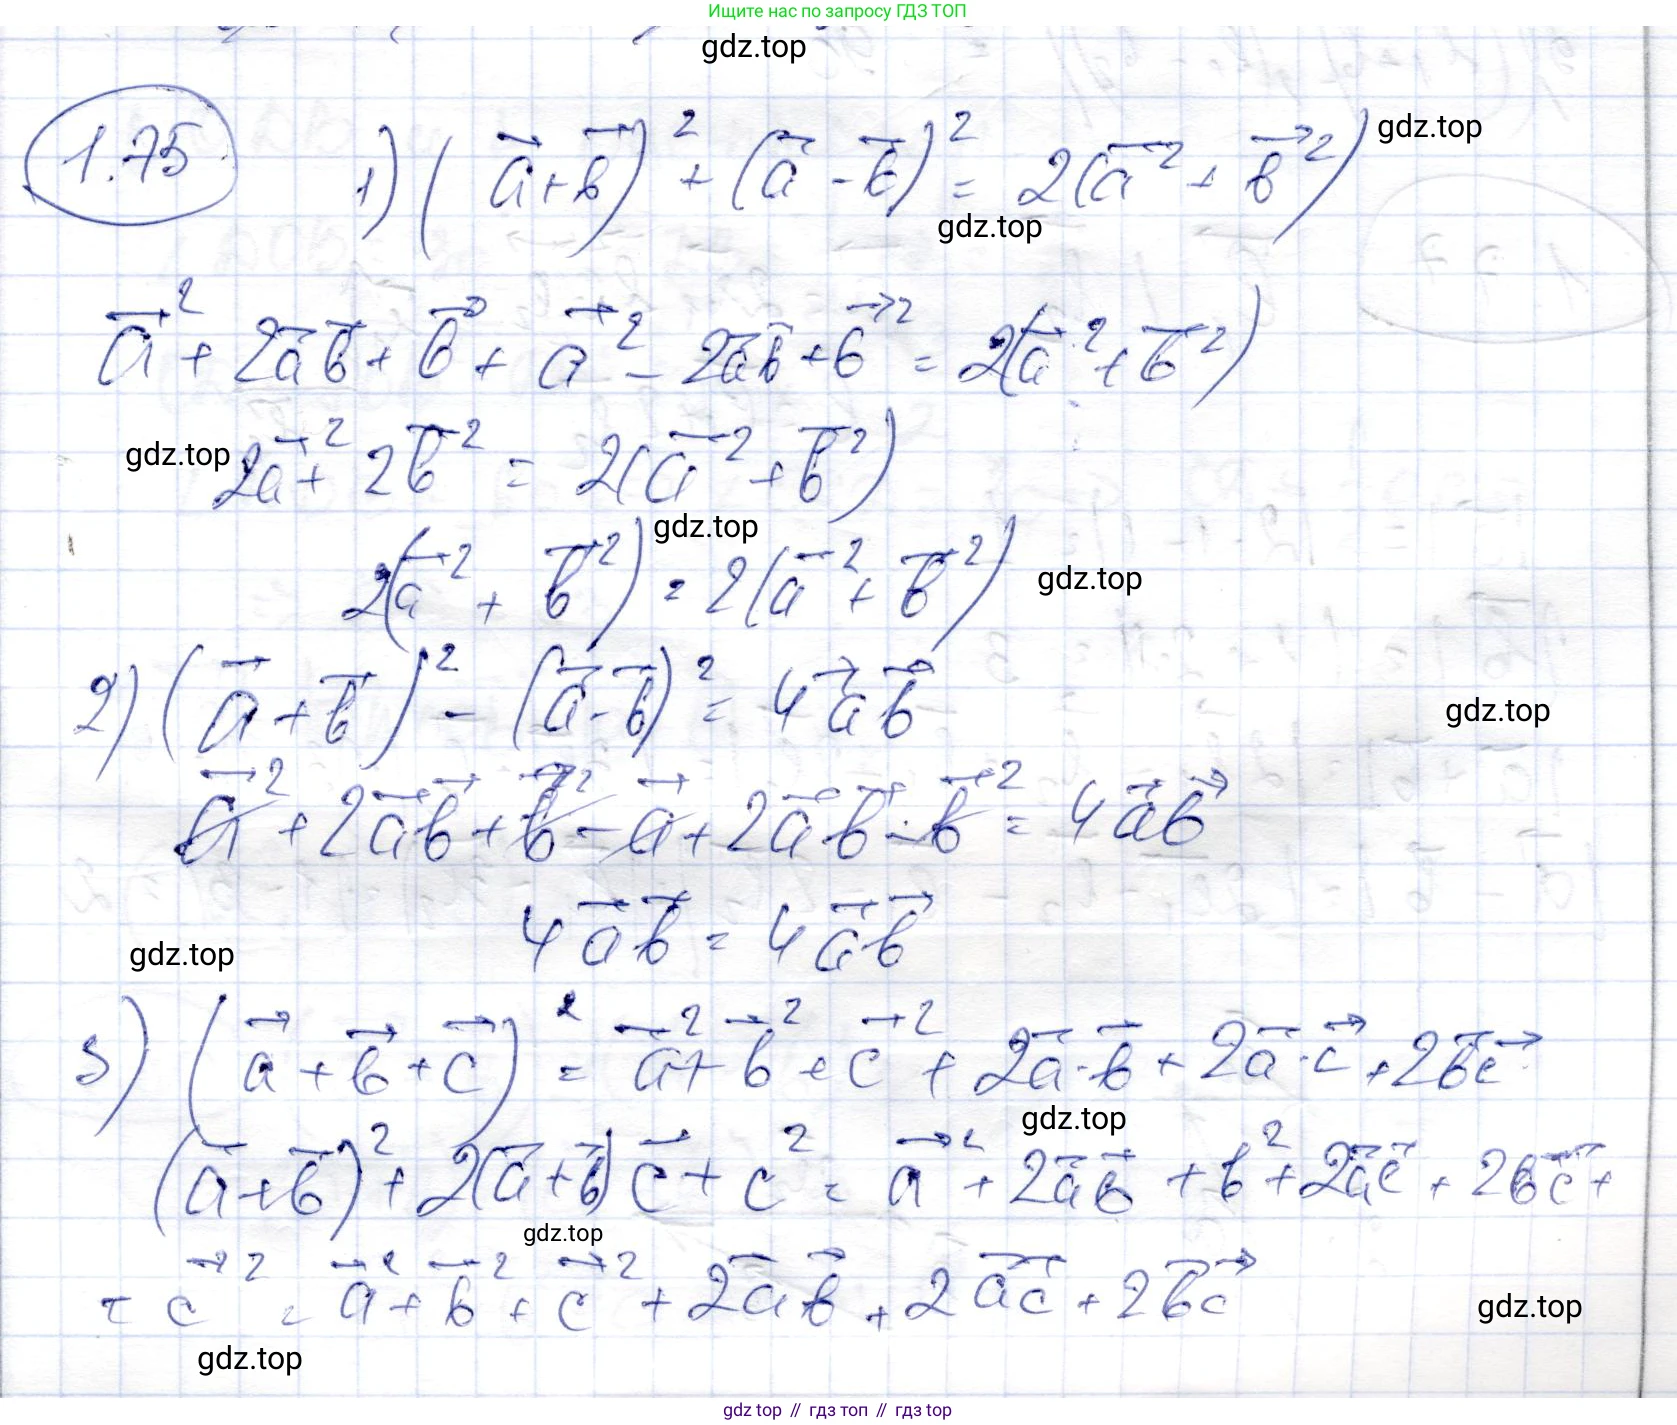 Ищите нас по запросу ГДЗ ТОП
gdz.top
1.75
1) (a⃗+b⃗)² + (a⃗ - b⃗)² = 2(a⃗² + b⃗²)
gdz.top
gdz.top
a⃗² + 2a⃗b⃗ + b⃗ + a⃗² - 2a⃗b⃗ + b⃗² = 2(a⃗² + b⃗²)
gdz.top
2a⃗² + 2b⃗² = 2(a⃗² + b⃗²)
gdz.top
2(a⃗² + b⃗²) = 2(a⃗² + b⃗²)
gdz.top
2) (a⃗ + b⃗)² - (a⃗ - b⃗)² = 4a⃗b⃗
gdz.top
a⃗² + 2a⃗b⃗ + b⃗² - a⃗ + 2a⃗b⃗ - b⃗² = 4a⃗b⃗
4a⃗b⃗ = 4a⃗b⃗
gdz.top
3) (a⃗ + b⃗ + c⃗)² = a⃗² + b⃗² + c⃗² + 2a⃗·b⃗ + 2a⃗·c⃗ + 2b⃗c⃗
gdz.top
(a⃗ + b⃗)² + 2(a⃗ + b⃗)c⃗ + c² = a⃗² + 2a⃗b⃗ + b² + 2a⃗c⃗ + 2b⃗c⃗ +
gdz.top
+ c⃗² = a⃗² + b⃗² + c⃗² + 2a⃗b⃗ + 2a⃗c⃗ + 2b⃗c⃗
gdz.top
gdz.top
gdz top // гдз топ // гдз top